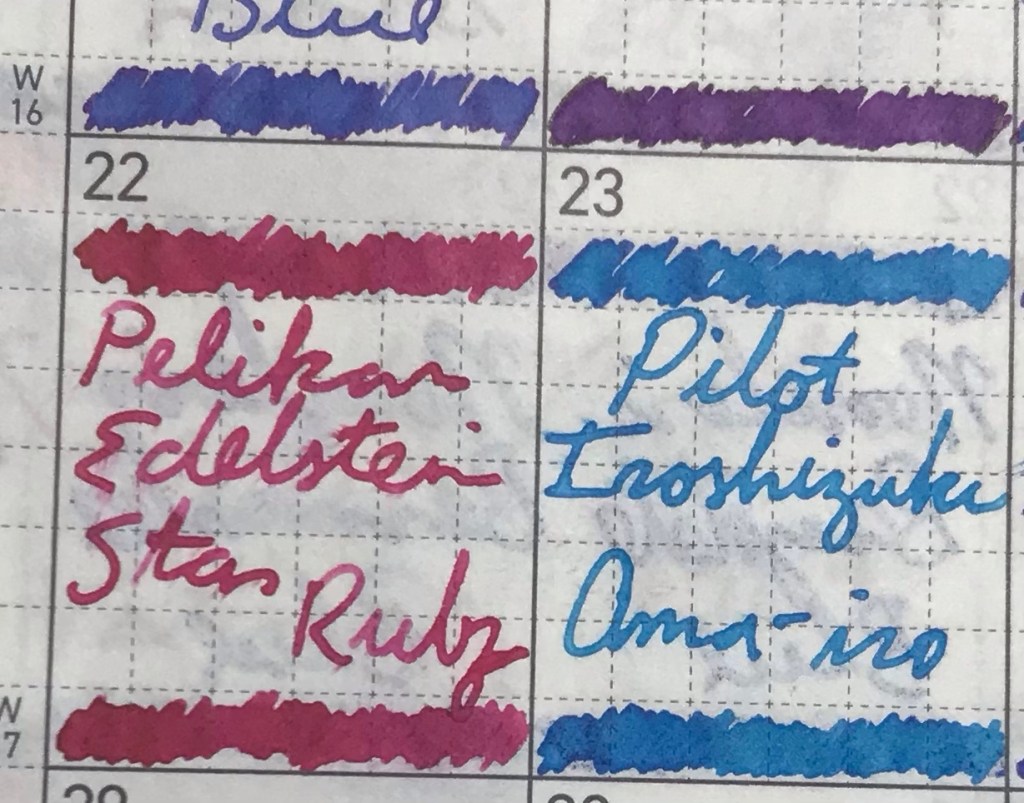 Blue
W
16
22
23
Pelikan
Edelstein
Star Ruby
Pilot
Iroshizuku
Ama-iro
W
7
29